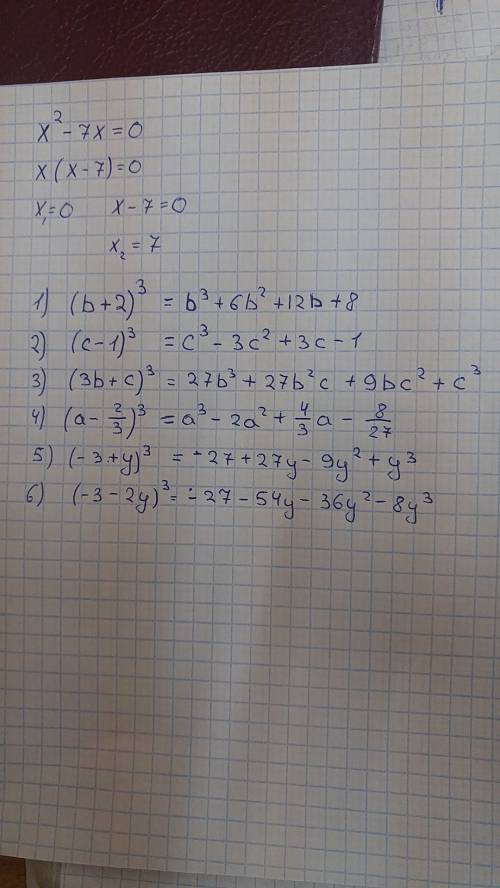 x² - 7x = 0
x(x - 7) = 0
x₁ = 0   x - 7 = 0
x₂ = 7
1) (b + 2)³ = b³ + 6b² + 12b + 8
2) (c - 1)³ = c³ - 3c² + 3c - 1
3) (3b + c)³ = 27b³ + 27b²c + 9bc² + c³
4) (a - 2/3)³ = a³ - 2a² + 4/3 a - 8/27
5) (-3 + y)³ = -27 + 27y - 9y² + y³
6) (-3 - 2y)³ = -27 - 54y - 36y² - 8y³